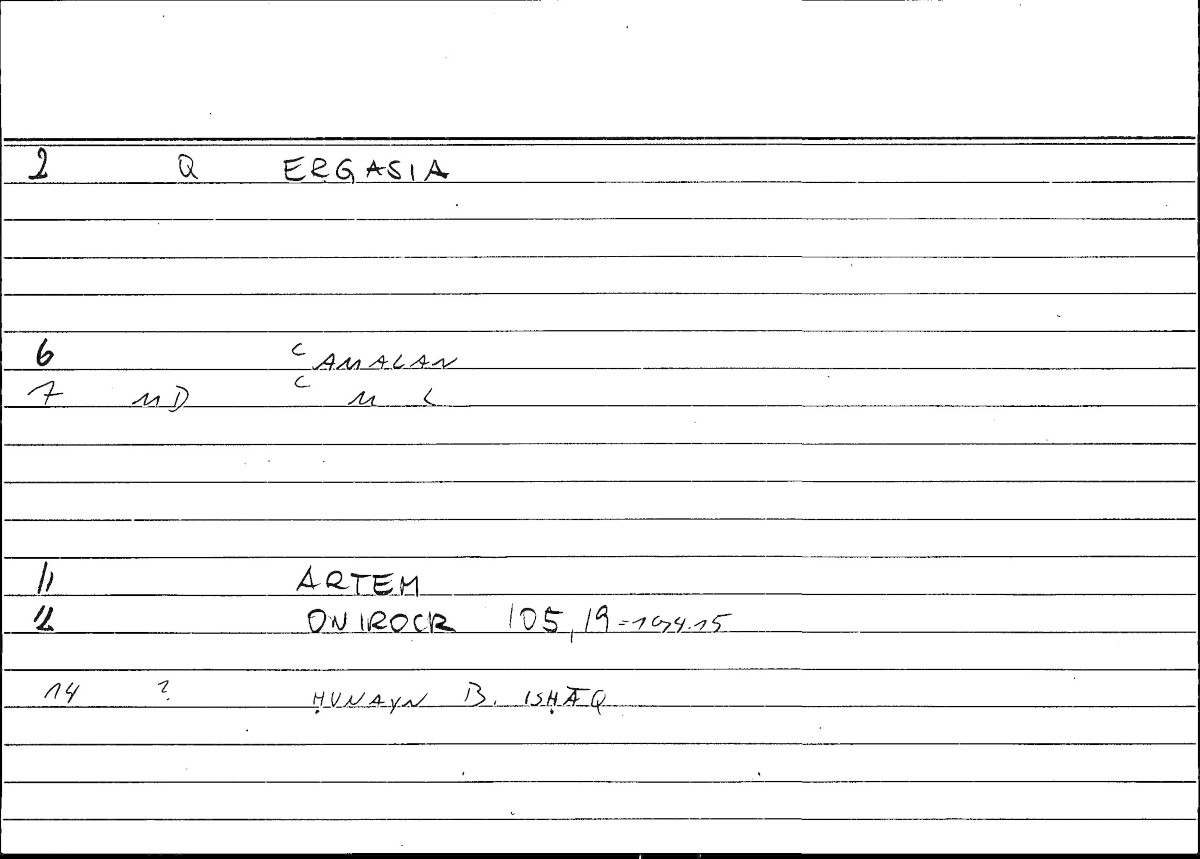 2 Q ERGASIA
6 ʿAMALAN
7 MD ʿ M L
11 ARTEM
12 ONIROCR 105,19
14 ? ḤUNAYN B. ISḤĀQ